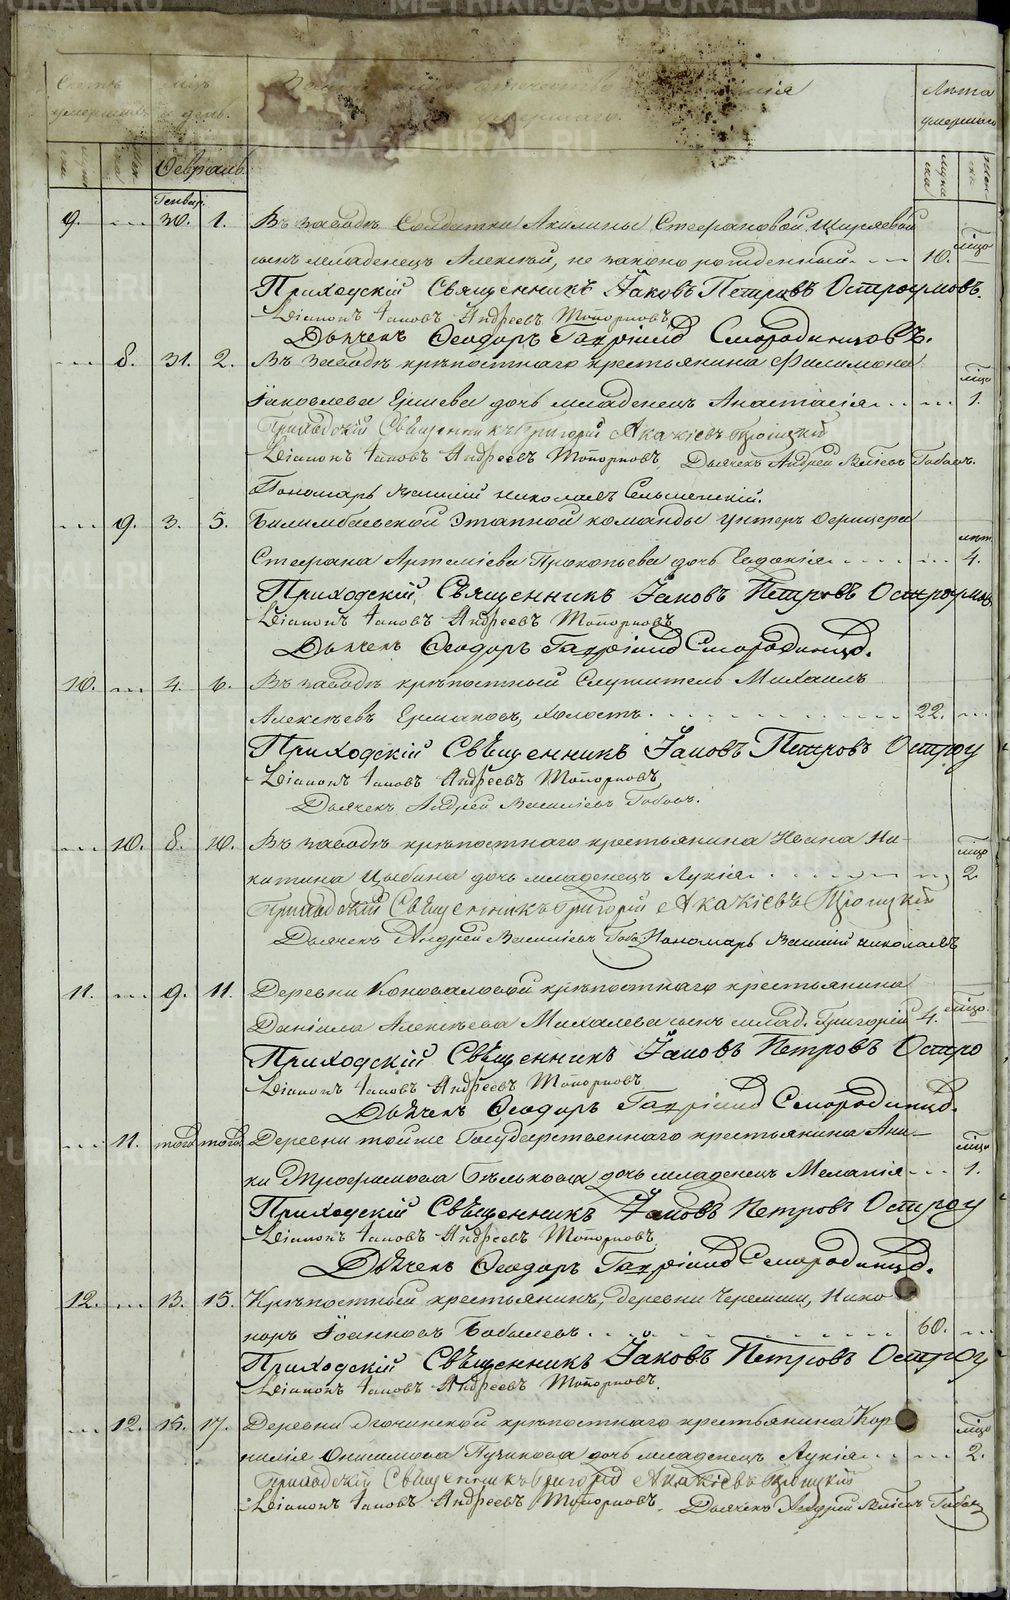 METRIKI.GASO-URAL.RU
Счетъ умершихъ
Мѣсяцъ и день.
умершаго.
Лѣта умершаго
Февраль.
Генвар.
9. — 30. 1. Въ заводѣ Солдатки Акилины Стефановой Ширяевой
сынъ младенецъ Алексѣй, не законно рожденный 10. мѣсяц.
Приходскій Священникъ Іаковъ Петровъ Остроумовъ.
Діаконъ Іаковъ Андреевъ Топорковъ
Дьячекъ Ѳеодоръ Гавріиловъ Смородинцовъ.
— 8. 31. 2. Въ заводѣ крѣпостнаго крестьянина Филимона
Іаковлева дочь младенецъ Анастасія — мѣсяц. 1.
Приходскій Священникъ Григорій Акакіевъ Троицкій
Діаконъ Іаковъ Андреевъ Топорковъ Дьячекъ Андрей
Пономарь Николаевъ
— 9. 3. 5. Билимбаевской Этапной команды унтеръ офицера
Стефана Артеміева Прокопьева дочь Евдокія — лѣт. 4.
Приходскій Священникъ Іаковъ Петровъ Остроумов
Діаконъ Іаковъ Андреевъ Топорковъ
Дьячекъ Ѳеодоръ Гавріилов Смородинцов.
10. — 4. 6. Въ заводѣ крѣпостный Служитель Михаилъ
Алексѣевъ Ермаковъ, холостъ 22. —
Приходскій Священникъ Іаковъ Петровъ Остроу
Діаконъ Іаковъ Андреевъ Топорковъ
Дьячекъ Андрей Василіевъ
— 10. 8. 10. Въ заводѣ крѣпостнаго крестьянина Ивана Ни-
китина Цыбина дочь младенецъ Лукія — мѣсяц. 2
Приходскій Священникъ Григорій Акакіевъ Троицкій
Дьячекъ Андрей Василіевъ Пономарь Николаевъ
11. — 9. 11. Деревни Коноваловой крѣпостнаго крестьянина
Даніила Алексѣева Михалева сынъ млад. Григорій 4. мѣсяц.
Приходскій Священникъ Іаковъ Петровъ Остро
Діаконъ Іаковъ Андреевъ Топорковъ
Дьячекъ Ѳеодоръ Гавріилов Смородинцов.
— 11. того того Деревни тойже Государственнаго крестьянина Ани-
ки Трофимова Бѣлькова дочь младенецъ Меланія — мѣсяц. 1.
Приходскій Священникъ Іаковъ Петровъ Острoу
Діаконъ Іаковъ Андреевъ Топорковъ
Дьячекъ Ѳеодоръ Гавріилов Смородинцов.
12. — 13. 15. Крѣпостный крестьянинъ, деревни Черемши, Нико
норъ Іоанновъ Бабылевъ 60. —
Приходскій Священникъ Іаковъ Петровъ Остроу
Діаконъ Іаковъ Андреевъ Топорковъ.
— 12. 15. 17. Деревни крѣпостнаго крестьянина Кор
нилія Онисимова дочь младенецъ Лукія — мѣсяц. 2.
Приходскій Священникъ Григорій Акакіевъ Троицкій
Діаконъ Іаковъ Андреевъ Топорковъ Дьячекъ Андрей
METRIKI.GASO-URAL.RU